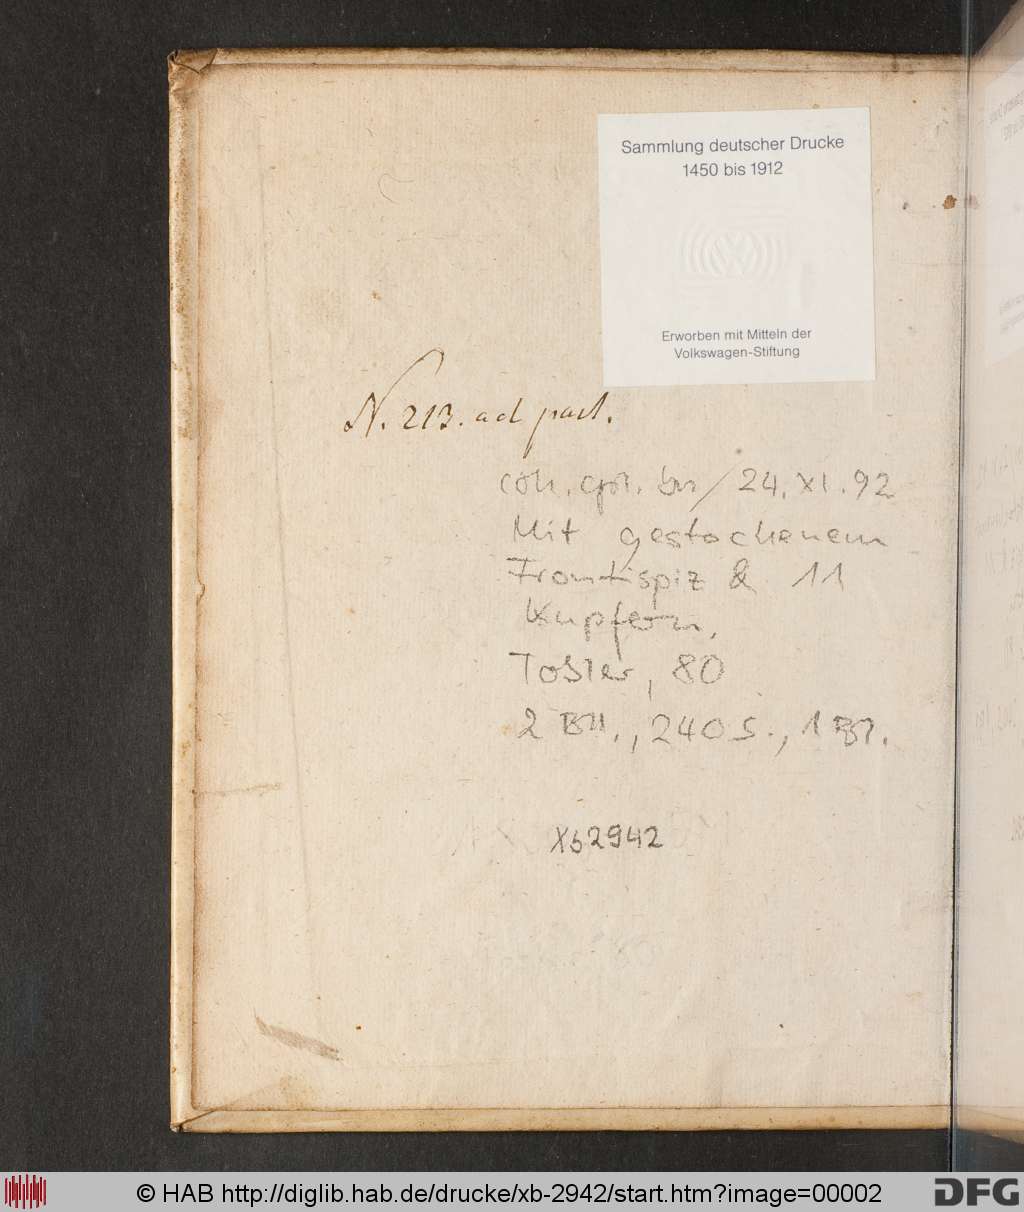 Sammlung deutscher Drucke
1450 bis 1912
Erworben mit Mitteln der
Volkswagen-Stiftung
N. 213. ad part.
coll. cpl. bn / 24. XI. 92
Mit gestochenem
Frontispiz & 11
Kupfern,
Tobler, 80
2 Bll., 240 S., 1 Bl.
Xb 2942
© HAB http://diglib.hab.de/drucke/xb-2942/start.htm?image=00002
DFG